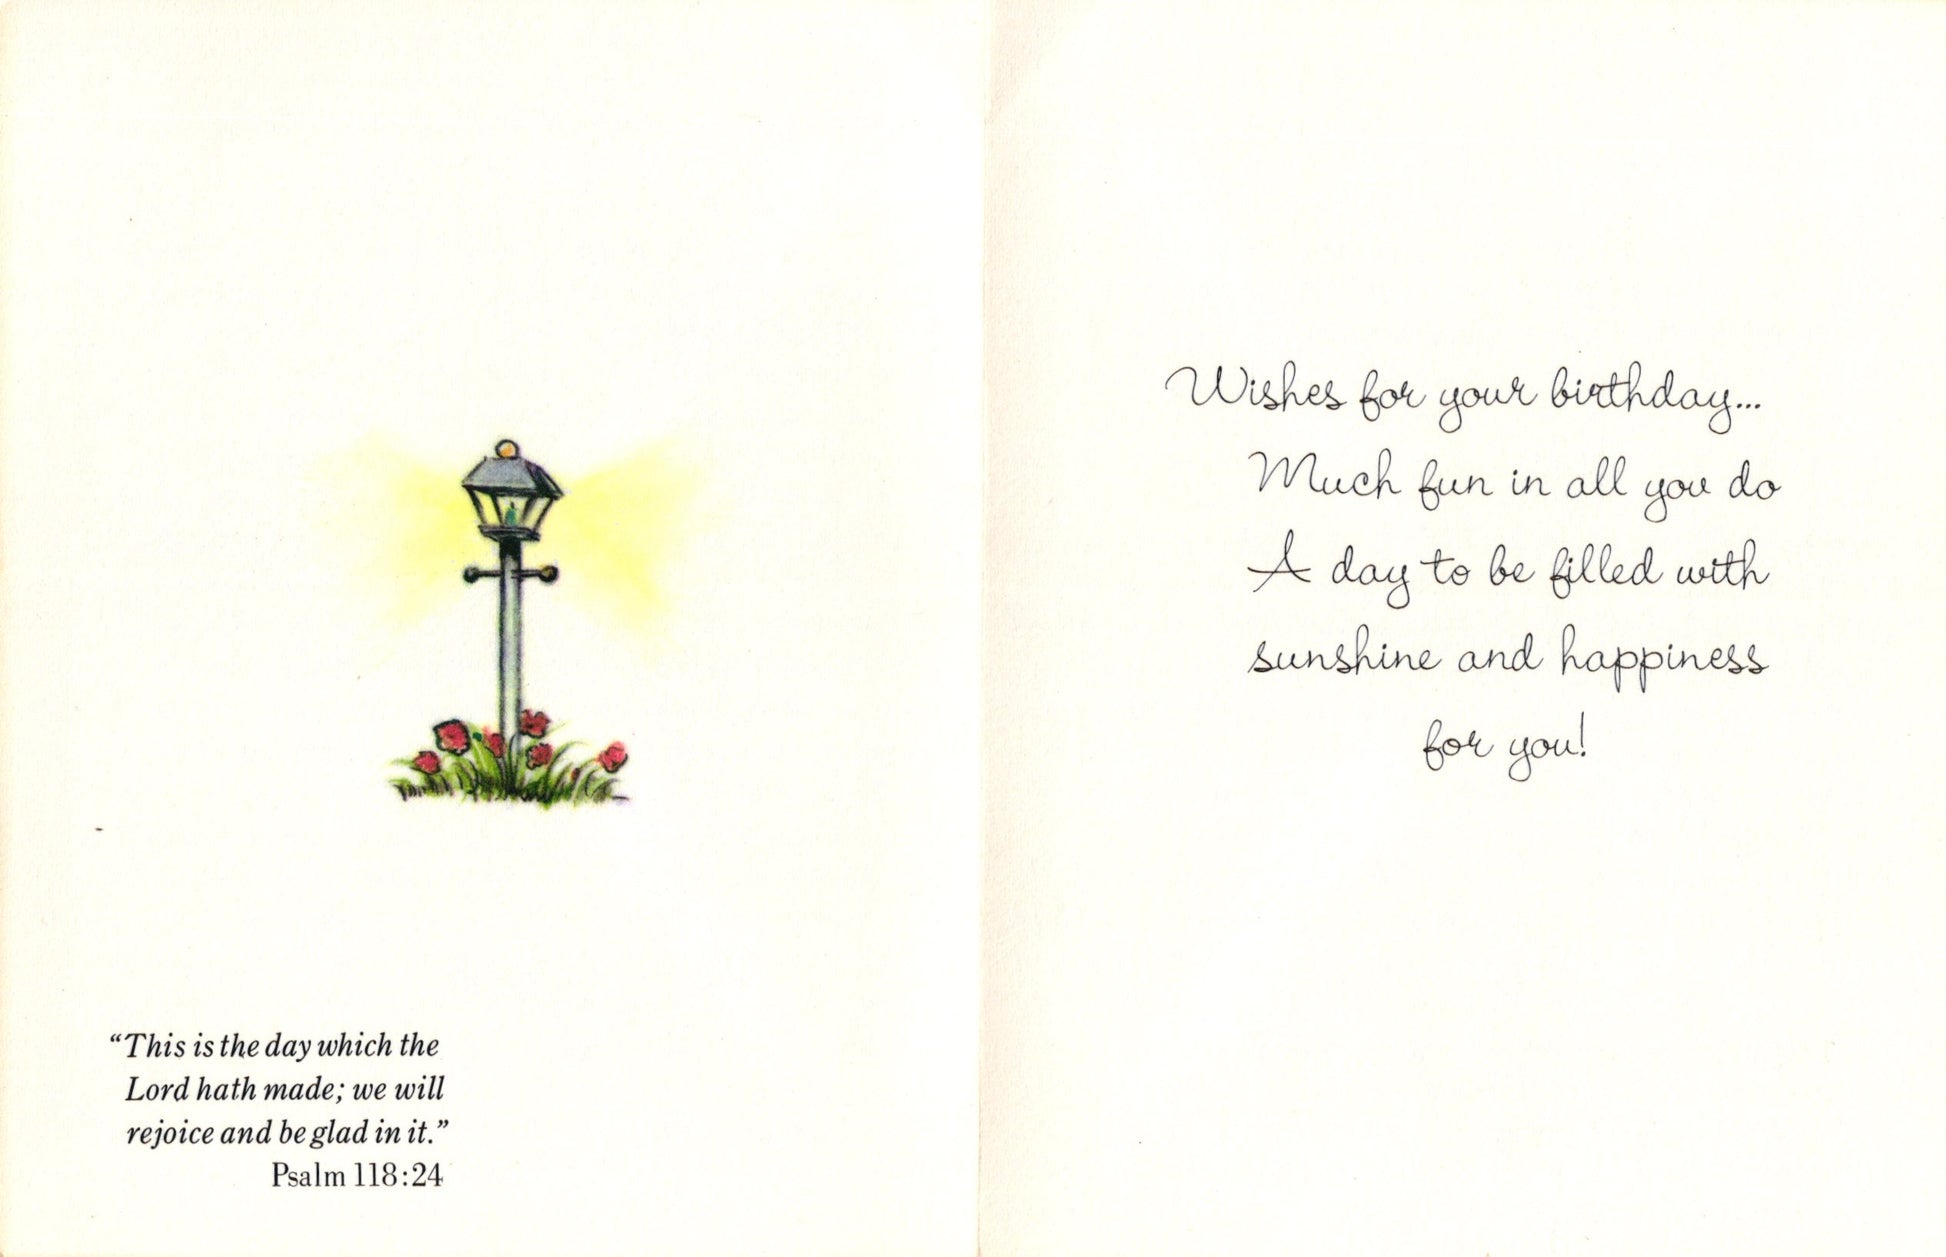 “This is the day which the
Lord hath made; we will
rejoice and be glad in it.”
Psalm 118:24
Wishes for your birthday...
Much fun in all you do
A day to be filled with
sunshine and happiness
for you!